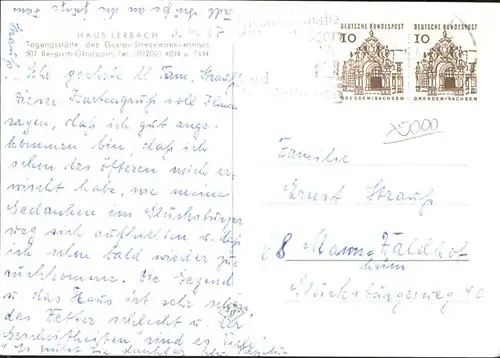 HAUS LERBACH
Tagungsstätte des Gustav-Stresemann-Instituts
507 Bergisch-Gladbach, Tel. (02202) 4014 u. 7444
Sehr geehrte Fam. Strauß!
Dieser Kartengruß soll Ihnen
sagen, daß ich gut ange-
kommen bin, daß ich
schon des öfteren mich er-
wischt habe, wie meine
Gedanken im Glücksburger
weg sich aufhielten u. daß
ich schon bald wieder zu-
rückkomme. Die Gegend
u. das Haus ist sehr schön,
das Wetter schlecht u. der
und es
DEUTSCHE BUNDESPOST
10
DRESDEN/SACHSEN
DEUTSCHE BUNDESPOST
10
DRESDEN/SACHSEN
x5000
Familie
Ernst Strauß
68 Mann-Waldhof
heim
Glücksburgerweg 40